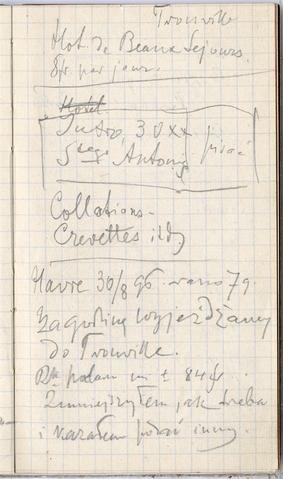 Trouville
Hot. de Beaux Séjours.
8fr. par jour.
Hotel
Jutro, 30 xx
Stego Antoniego pisać
Collations -
Crevettes itd.
Havre 30/8 96. rano 7g.
Za godzinę wyjeżdżamy
do Trouville.
podano mi 84 fr.
Zmniejszyłem, jak trzeba
i kazałem podać inny.